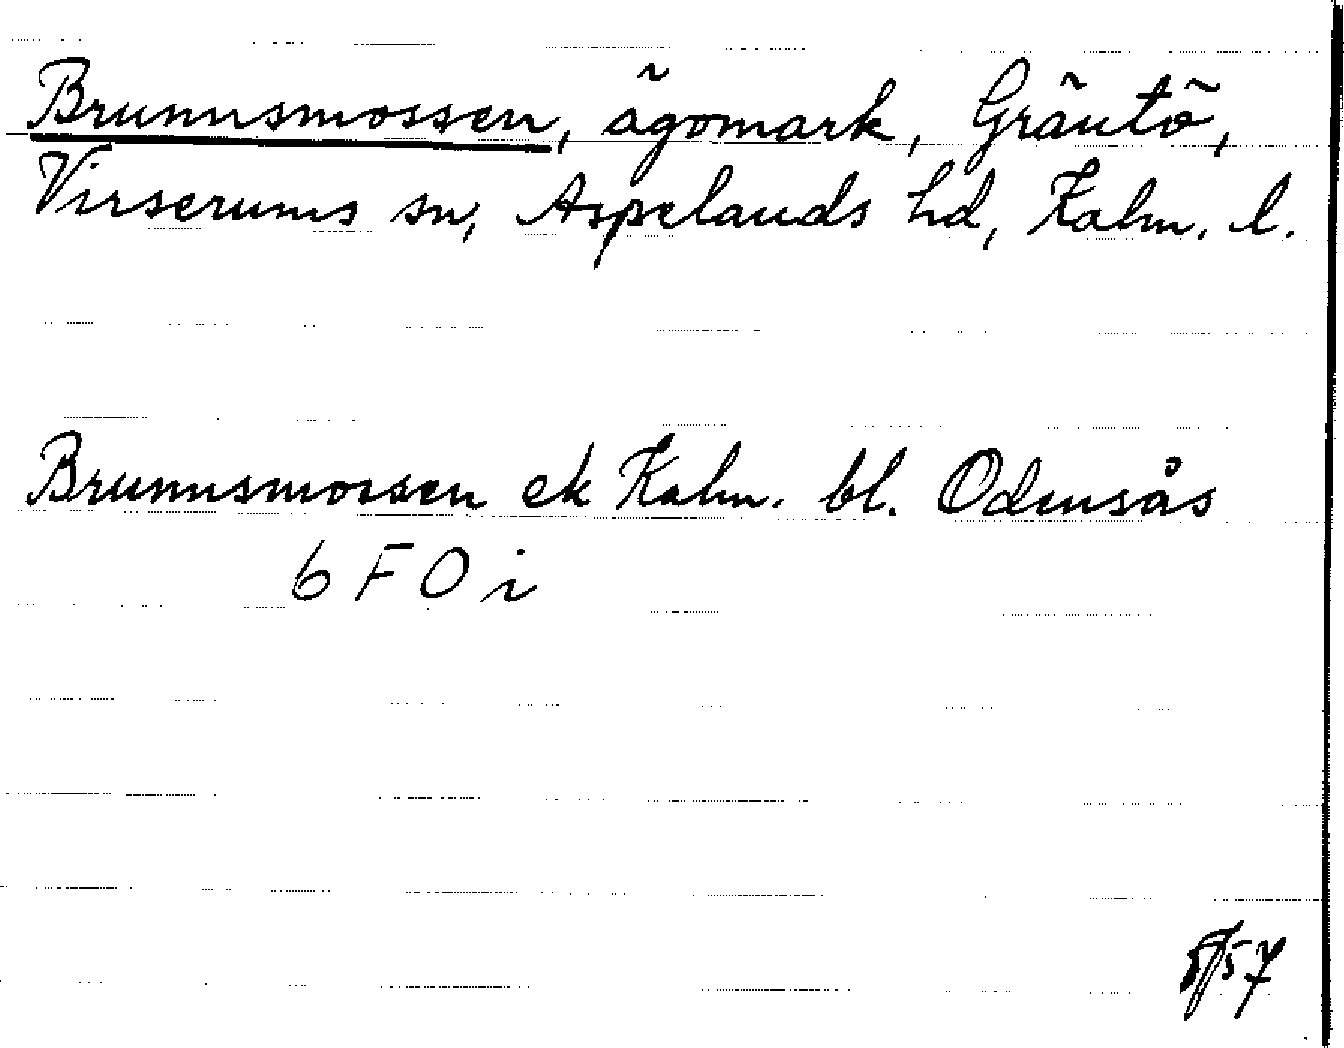 Brunnsmossen, ägomark, Gräntö,
Virserums sn, Aspelands hd, Kalm. l.
Brunnsmossen ek Kalm. bl. Odensås
6 F O i
57